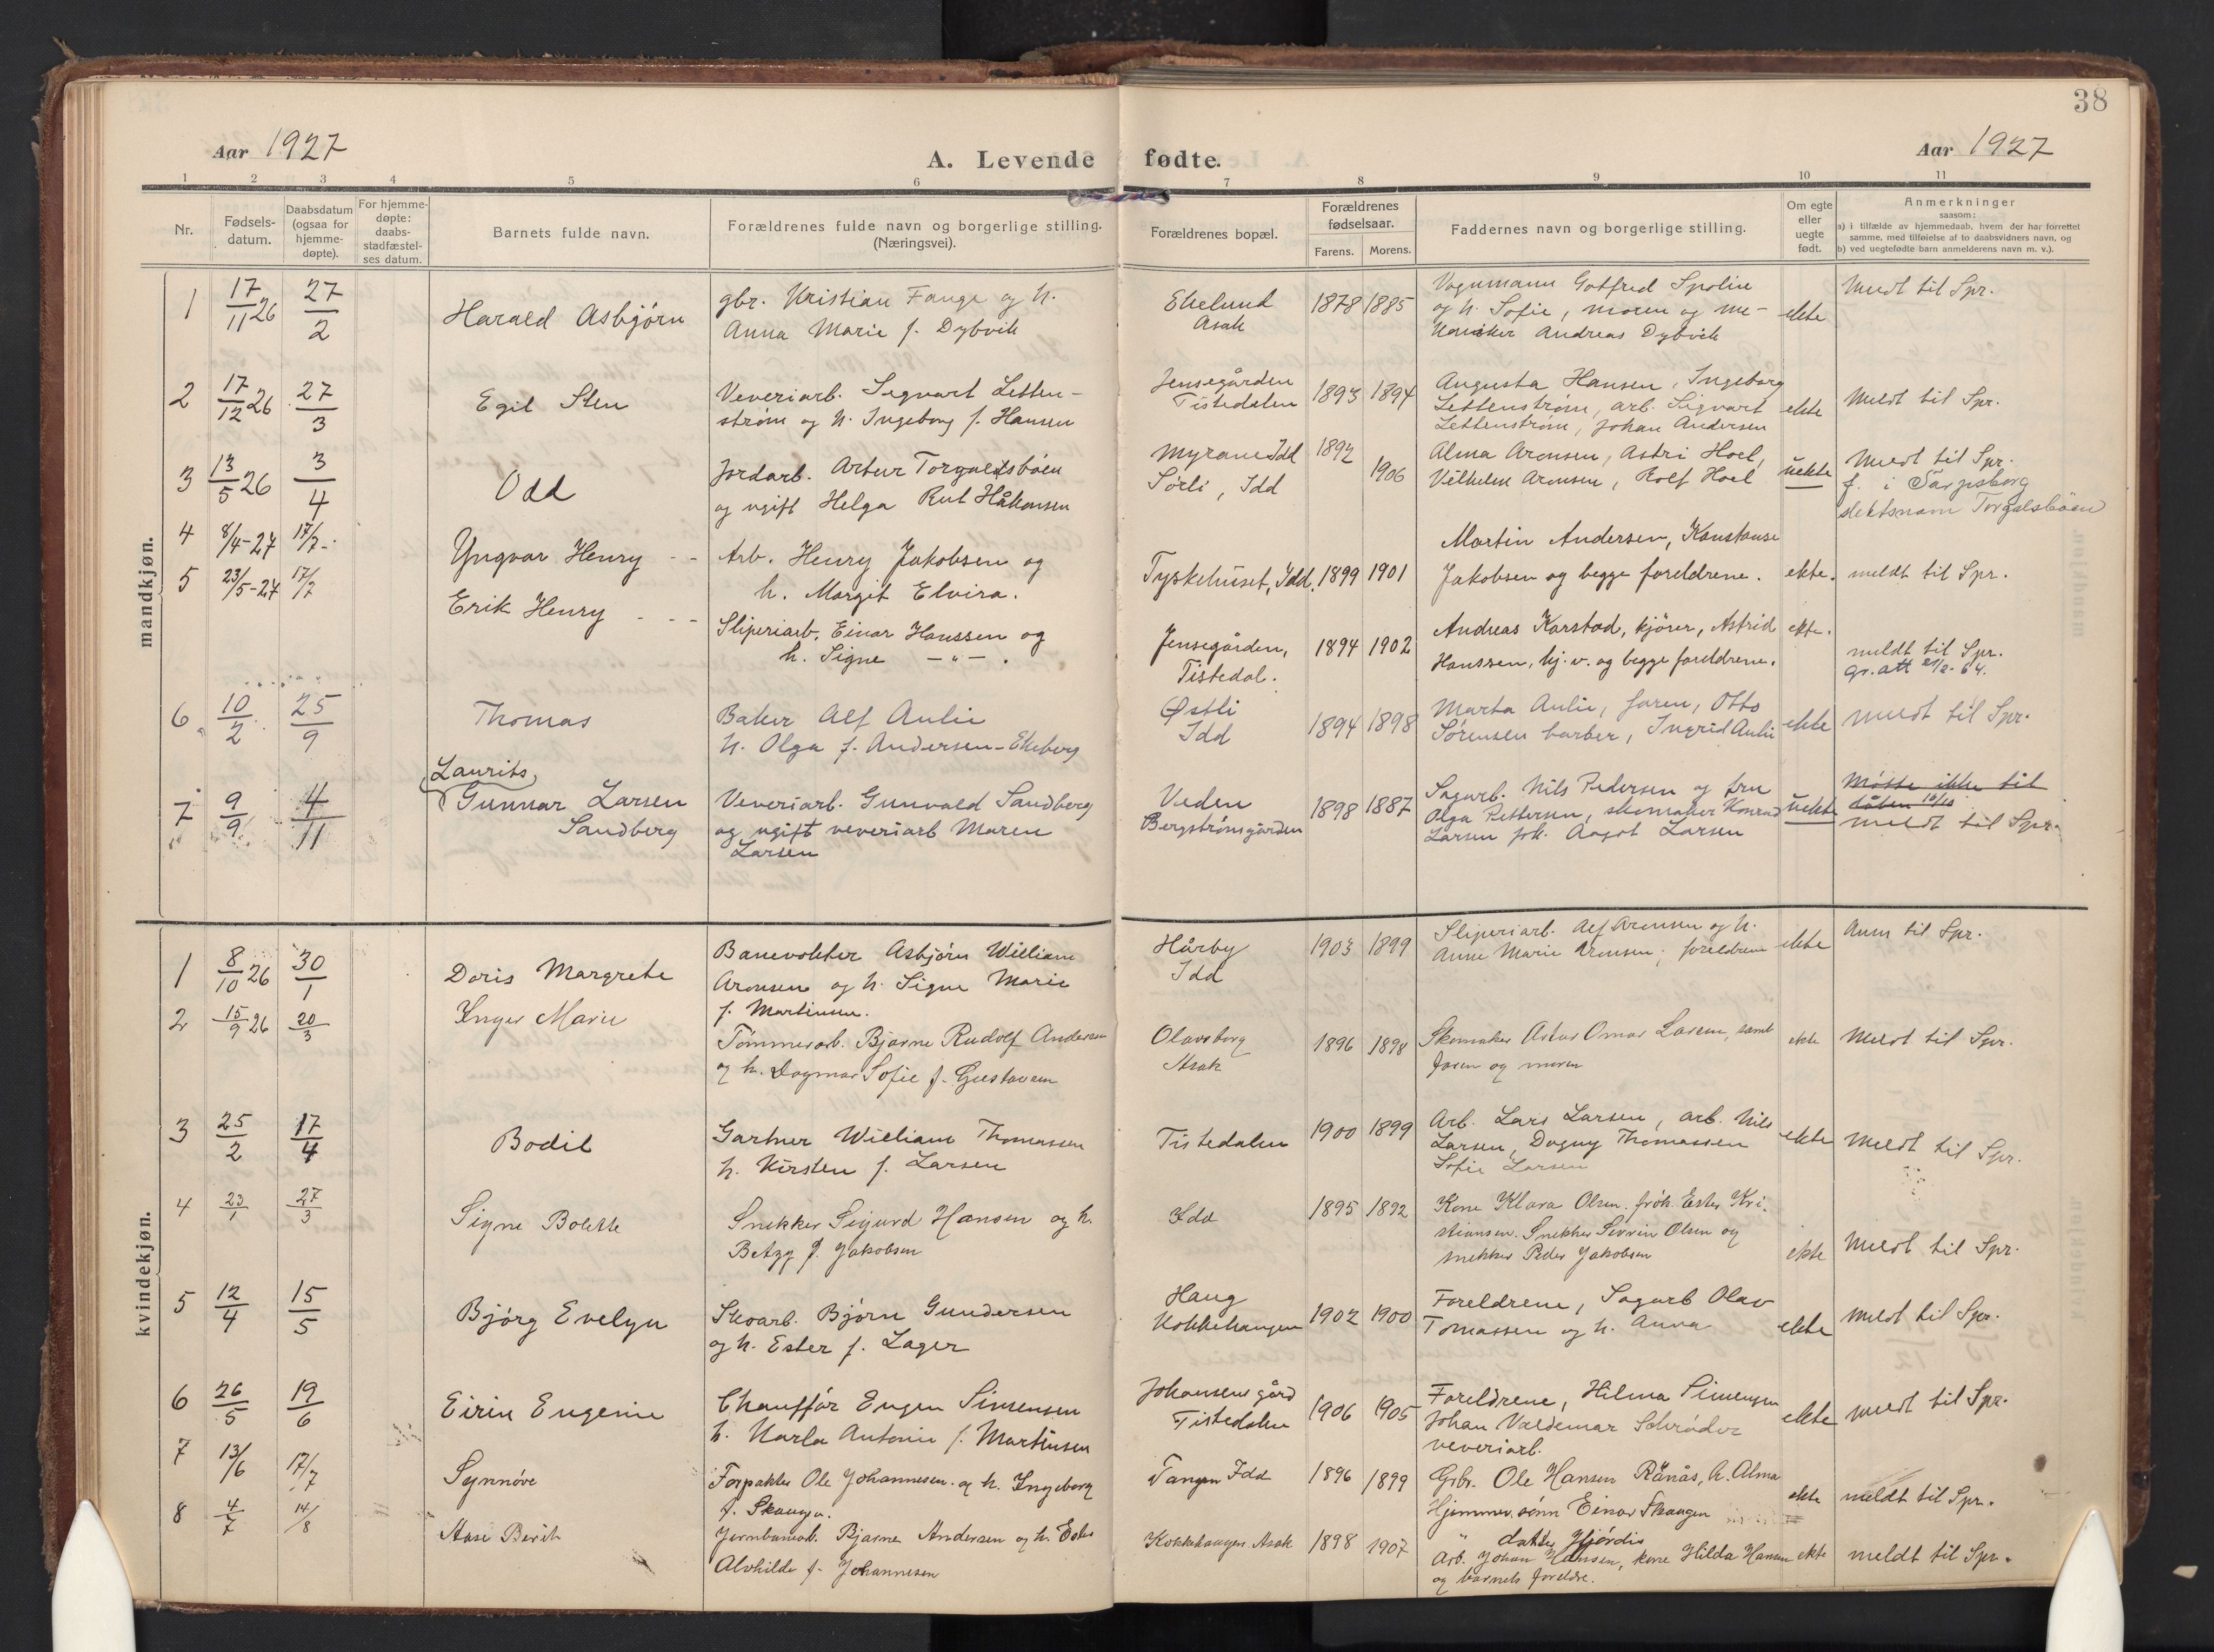 38
Aar 1927
A. Levende fødte.
Aar 1927
1 2 3 4 5 6 7 8 9 10 11
Nr.
Fødsels-
datum.
Daabsdatum
(ogsaa for
hjemme-
døpte).
For hjemme-
døpte:
daabs-
stadfæstel-
ses datum.
Barnets fulde navn.
Forældrenes fulde navn og borgerlige stilling.
(Næringsvei).
Forældrenes bopæl.
Forældrenes
fødselsaar.
Farens. Morens.
Faddernes navn og borgerlige stilling.
Om egte
eller
uegte
født.
Anmerkninger
saasom:
a) i tilfælde av hjemmedaab, hvem der har forrettet
samme, med tilføielse af to daabsvidners navn, og
b) ved uegtefødte barn anmelderens navn m. v.).
mandkjøn.
1 17/11 26 27/2
Harald Asbjørn
gbr. Kristian Fange og h.
Anna Marie f. Dybvik
Ekelund
Asak
1878 1885
Vognmann Gotfred Spolin
og h. Sofie, moren og me-
kaniker Andreas Dybvik
ekte
Meldt til Spr.
2 17/12 26 27/3
Egil Sten
Veveriarb. Sigvart Letten-
strøm og h. Ingeborg f. Hansen
Jensegården
Tistedalen
1893 1894
Augusta Hansen, Ingeborg
Lettenstrøm, arb. Sigvart
Lettenstrøm, Johan Andersen
ekte
Meldt til Spr.
3 13/5 26 3/4
Odd
Jordarb. Artur Torgalsbøen
og ugift Helga Rut Håkonsen
Myrane Idd
Sørli, Idd
1892
1906
Alma Aronsen, Astri Hoel,
Vilhelm Aronsen, Rolf Hoel
uekte
Meldt til Spr.
f. i Sarpsborg
slektsnavn Torgalsbøen
4 8/4-27 17/7-
Yngvar Henry - -
Arb. Henry Jakobsen og
h. Margit Elvira.
Tyskehuset, Idd.
1899 1901
Martin Andersen, Konstanse
Jakobsen og begge foreldrene.
ekte.
meldt til Spr.
5 23/5-27 17/7
Erik Henry - - -
Sliperiarb. Einar Hanssen og
h. Signe -"- .
Jensegården,
Tistedal.
1894 1902
Andreas Karstad, kjører, Astrid
Hanssen, hj. v. og begge foreldrene.
ekte.
meldt til Spr.
gr. att 21/2-64.
6 10/2 25/9
Thomas
Baker Alf Aulie
h. Olga f. Andersen-Ekeberg
Østli
Idd
1894 1898
Marta Aulie, faren, Otto
Sørensen barber, Ingrid Aulie
ekte
Meldt til Spr.
7 9/9 4/11
Laurits,
Gunnar Larsen
Sandberg
Veveriarb. Gunvald Sandberg
og ugift veveriarb Maren
Larsen
Veden
Bergstrømsgården
1898 1887
Sagarb. Nils Pedersen og fru
Olga Pettersen, skomaker Konrad
Larsen frk. Aagot Larsen
uekte
Møtte ikke til
dåben 16/10
meldt til Spr.
kvindekjøn.
1 8/10 26 30/1
Doris Margrete
Banevokter Asbjørn William
Aronsen og h. Signe Marie
f. Martinsen.
Hårby
Idd
1903 1899
Sliperiarb. Alf Aronsen og h.
Anne Marie Aronsen; foreldrene
ekte
Anm til Spr.
2 15/9 26 20/3
Inger Marie
Tømmerarb. Bjarne Rudolf Andersen
og h. Dagmar Sofie f. Gustavsen
Olavsborg
Asak
1896 1898
Skomaker Artur Omar Larsen, samt
faren og moren
ekte
Meldt til Spr.
3 25/2 17/4
Bodil
Gartner William Thomassen
h. Kirsten f. Larsen
Tistedalen
1900 1899
Arb. Lars Larsen, arb. Nils
Larsen, Dagny Thomassen
Sofie Larsen
ekte
Meldt til Spr.
4 23/1 27/3
Signe Bolette
Snekker Sigurd Hansen og h.
Betzy f. Jakobsen
Idd
1895 1892
Kone Klara Olsen. frøk. Ester Kri-
stiansen. Snekker Severin Olsen og
snekker Peder Jakobsen
ekte
Meldt til Spr.
5 12/4 15/5
Bjørg Evelyn
Skoarb. Bjørn Gundersen
og h. Ester f. Lager
Haug
Kokkehaugen
1902 1900
Foreldrene, Sagarb Olav
Tomassen og h. Anna
ekte
Meldt til Spr.
6 26/5 19/6
Eirin Eugenie
Chauffør Eugen Simensen
h. Karla Antonie f. Martinsen
Johansens gård
Tistedalen
1906 1905
Foreldrene, Hilma Simensen
Johan Valdemar Schrøder
veveriarb.
ekte
meldt til Spr.
7 13/6 17/7
Synnøve
Forpakter Ole Johannesen og h. Ingeborg
f. Skaugen.
Tangen Idd
1896 1899
Grbr. Ole Hansen Rånås, h. Alma
Hjemmev. sønn Einar Skaugen
" datter Hjørdis
ekte
meldt til Spr.
8 4/7 14/8
Aase Berit
Jernbanearb. Bjarne Andersen og h. Ester
Alvhilde f. Johannesen
Kokkehaugen Asak
1898 1907
Arb. Johan Hansen, kone Hilda Hansen
og barnets foreldre.
ekte
meldt til Spr.